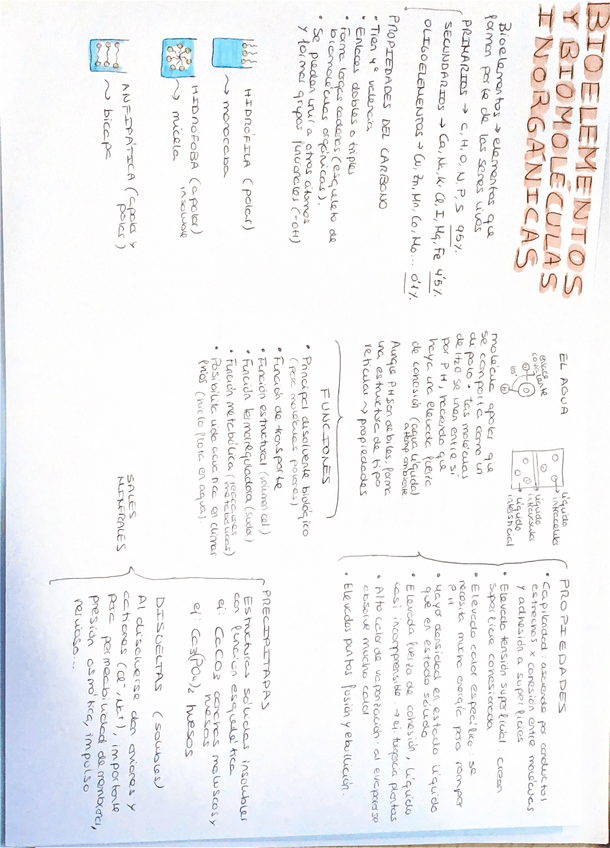 BIOELEMENTOS
Y BIOMOLÉCULAS
INORGÁNICAS
Bioelementos → elementos que
forman parte de los seres vivos
PRIMARIOS → C, H, O, N, P, S 95%
SECUNDARIOS → Ca, Na, K, Cl, I, Mg, Fe 4'5%
OLIGOELEMENTOS → Cu, Zn, Mn, Co, Mo... 0'1%
PROPIEDADES DEL CARBONO
• Tien 4º valencia
• Enlaces dobles o triples
• Forma largas cadenas (esqueleto de
biomoléculas orgánicas).
• Se pueden unir a otros átomos
y formar grupos funcionales (-OH)
HIDRÓFILA (polar)
→ monocapa
HIDRÓFOBA (apolar)
insoluble
→ micela
ANFIPÁTICA (apolar y
polar)
→ bicapa
EL AGUA
enlace
covalente
líquido
intracelular
líquido
intravascular
líquido
intersticial
molécula apolar que
se comporta como un
dipolo • Las moléculas
de H2O se unen entre sí
por P.H, haciendo que
haya una elevada fuerza
de cohesión (agua líquida)
a temp ambiente
Aunque PH son débiles, forma
una estructura de tipo
reticular → propiedades
FUNCIONES
• Principal disolvente biológico
(para moléculas polares)
• Función de transporte
• Función estructural (volumen cel)
• Función termorreguladora (sudor)
• Función metabólica (reacciones
metabólicas)
• Posibilita vida acuática en climas
fríos, (hielo flota en agua).
PROPIEDADES
• Capilaridad: asciende por conductos
estrechos x cohesión entre moléculas
y adhesión a superficies
• Elevada tensión superficial: crean
superficie cohesionada
• Elevado calor específico: se
necesita mucha energía para romper
P.H
• Mayor densidad en estado líquido
que en estado sólido
• Elevada fuerza de cohesión, líquido
casi incompresible → ej. turgencia plantas
• Alto calor de vaporización al evaporarse
absorbe mucho calor
• Elevados puntos fusión y ebullición.
SALES
MINERALES
PRECIPITADAS
Estructuras sólidas insolubles
con función esquelética
ej: CaCO3 conchas moluscos y
huesos
ej: Ca3(PO4)2 huesos
DISUELTAS (solubles)
Al disolverse dan aniones y
cationes (Cl-, Na+), importante
para permeabilidad de membrana,
presión osmótica, impulso
nervioso...